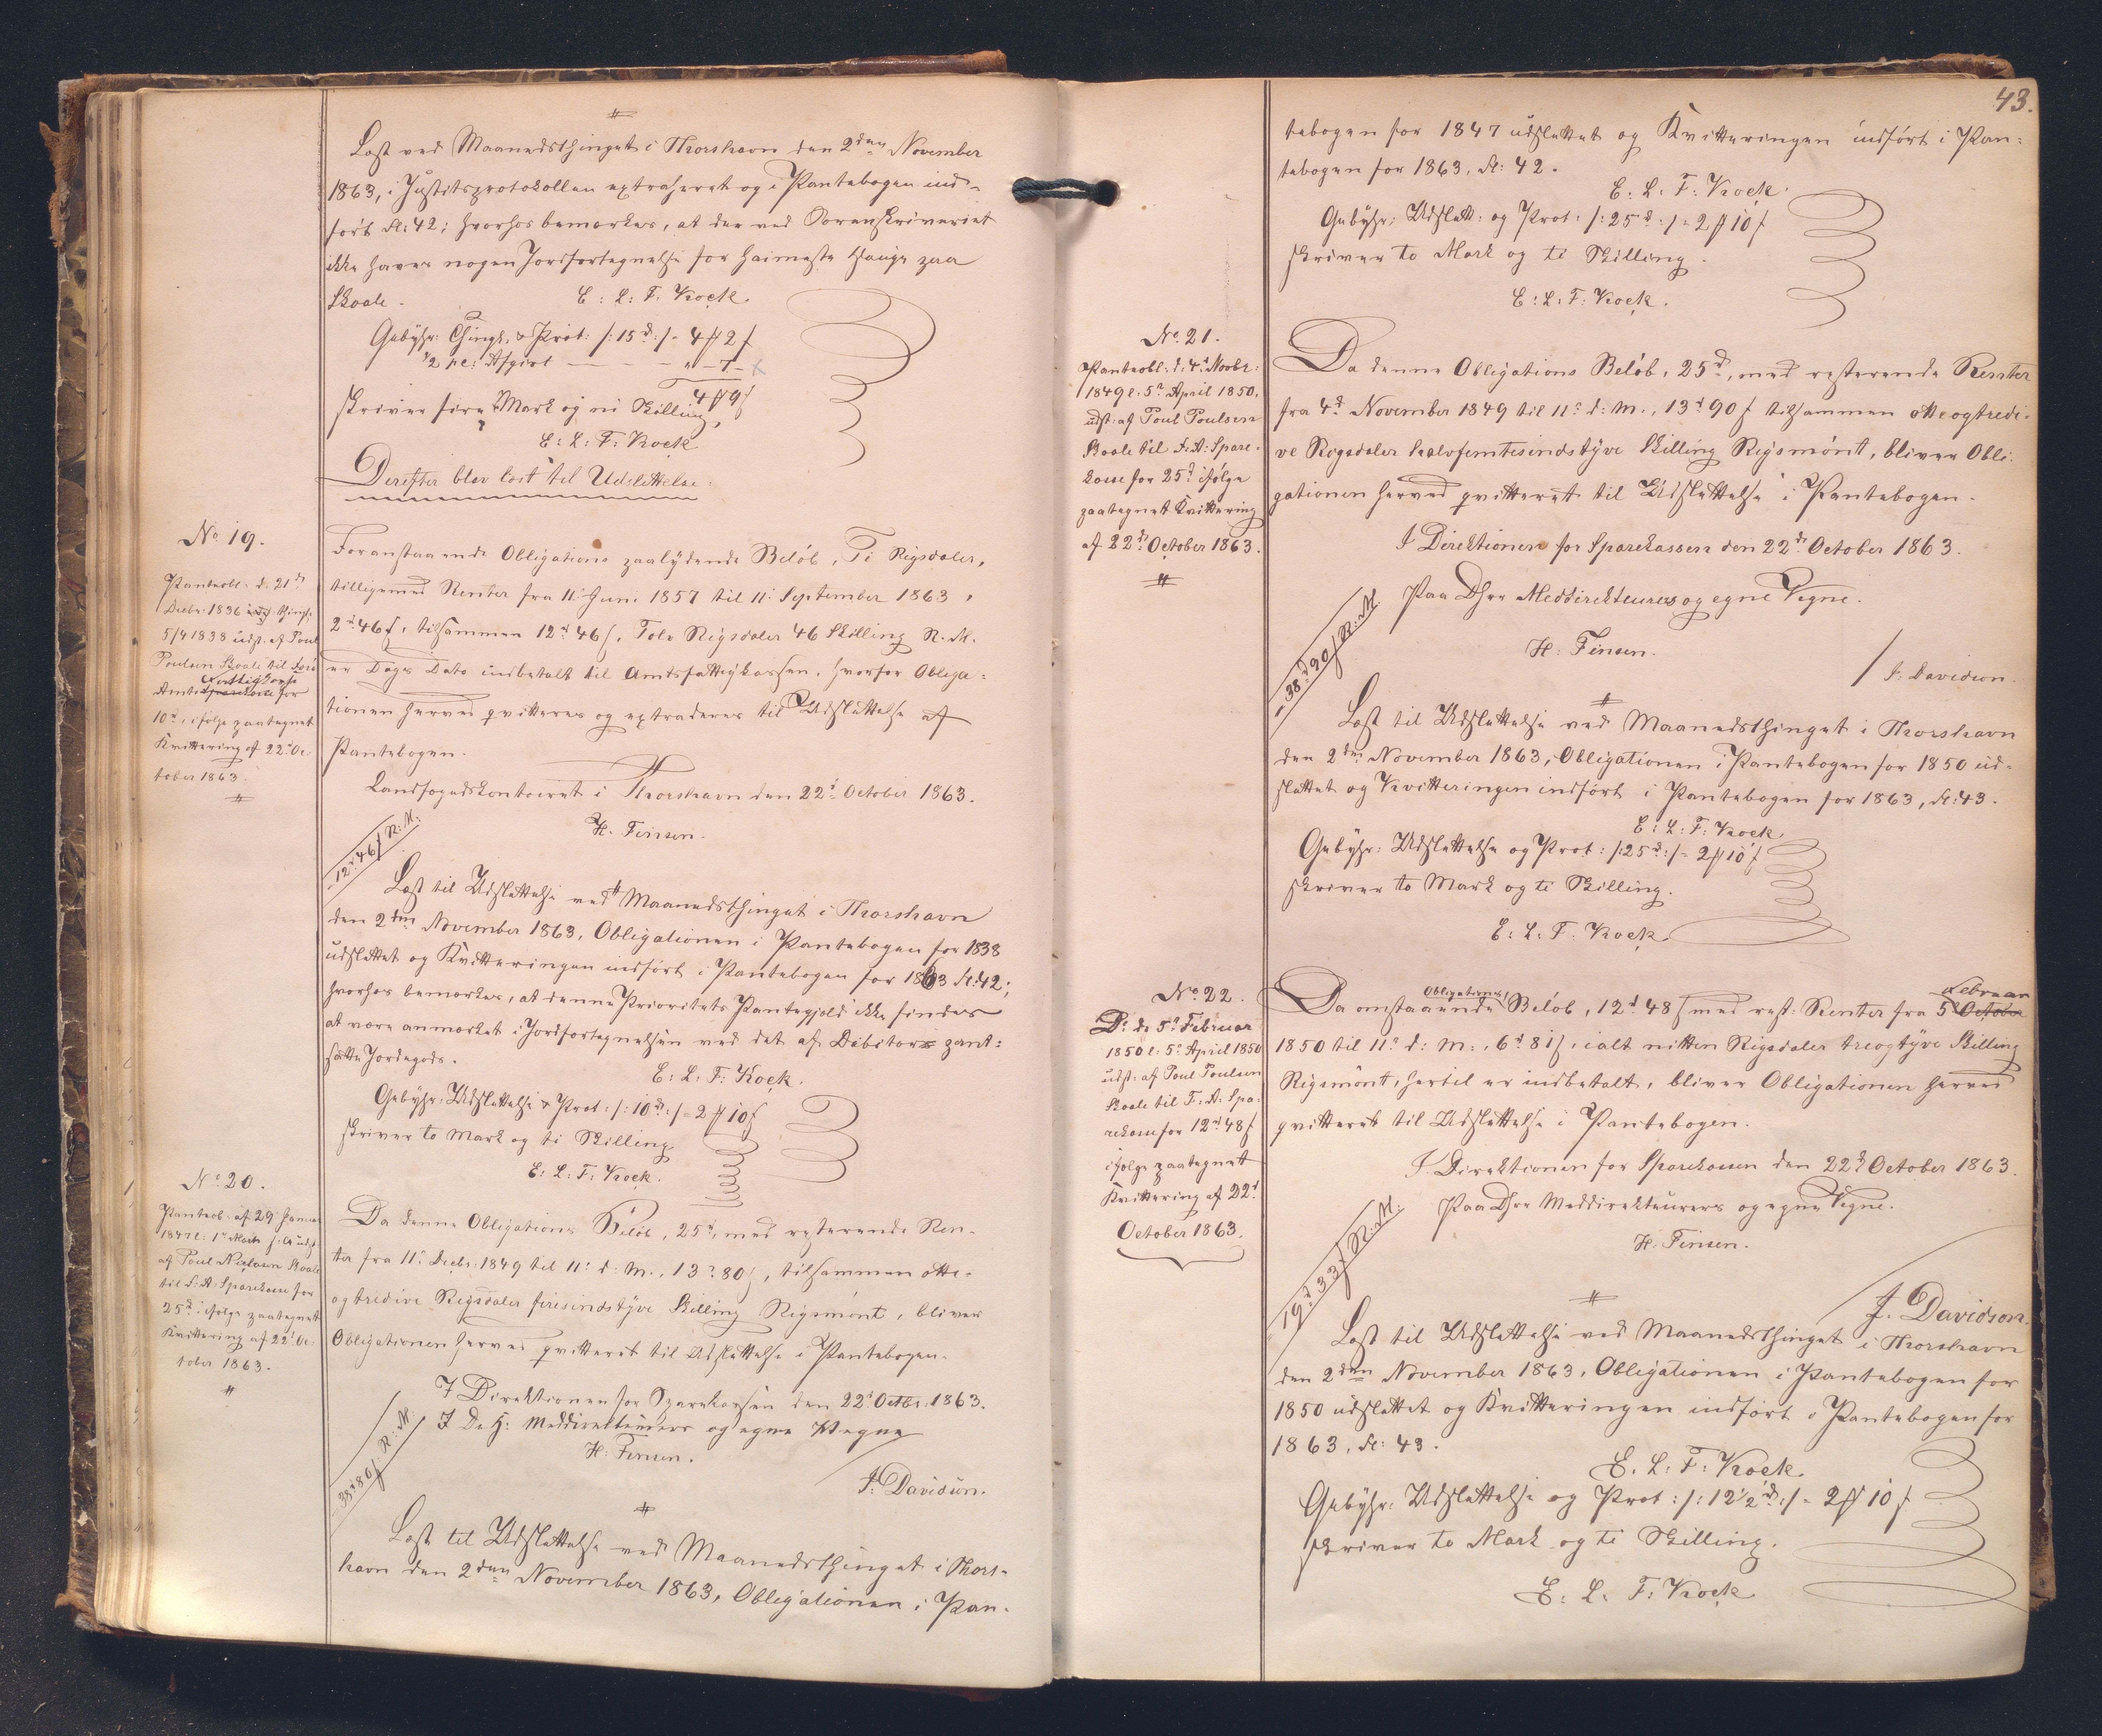 Læst ved Maanedsthinget i Thorshavn den 2den November
1863, i Justitsprotokollen extraheret og i Pantebogen ind-
ført Fl: 42; hvorhos bemærkes, at der ved Sorenskriveriet
ikke haves nogen Jordfortegnelse for Heimeste Hauge paa
Skaale.
E: L: F: Kock.
Gebyhr: Thingl. & Prot: /:15d:/ = 4 ℳ 2 ß
1/2 pC: Afgivt — — - " - 7 -
4 ℳ 9 ß
skriver fire Mark og ni Skilling,
E: L: F: Kock
Derefter blev læst til Udslettelse:
No 19.
Panteobl: d. 21d
Decbr: 1836 thingl:
5/4 1838 udst. af Poul
Poulsen Skaale til Færø
Amts Fattigkasse for
10d, ifølge paategnet
Kvittering af 22d Oc-
tober 1863.
Foranstaaende Obligations paalydende Beløb, Ti Rigsdaler,
tilligemed Renter fra 11 Juni 1857 til 11 September 1863,
2d 46 ß, tilsammen 12d 46 ß, Tolv Rigsdaler 46 Skilling R. M.
er Dags Dato indbetalt til Amtsfattigkassen, hvorfor Obliga-
tionen herved qvitteres og extraderes til Udslettelse af
Pantebogen.
Landfogedkontoiret i Thorshavn den 22d October 1863.
H. Finsen.
= 12d 46 ß R: M:
Læst til Udslettelse ved Maanedsthinget i Thorshavn
den 2den November 1863, Obligationen i Pantebogen for 1838
udslettet og Kvitteringen indført i Pantebogen for 1863 Fl: 42;
hvorhos bemærkes, at denne Prioritets Pantegjæld ikke findes
at være anmærket i Jordfortegnelsen ved det af Debitor pant-
satte Jordegods.
E: L: F: Kock.
Gebyhr: Udslettelse & Prot: /:10d:/ = 2 ℳ 10 ß
skriver to Mark og ti Skilling
E: L: F: Kock.
No 20.
Panteob. af 29 Januar
1847 l: 1 Marts s: A udst
af Poul Nielsen Skaale
til F: A: Sparekasse for
25d ifølge paategnet
Kvittering af 22d Oc-
tober 1863.
Da denne Obligations Beløb, 25d, med resterende Ren-
ter fra 11 Decbr: 1849 til 11 d: M., 13d 80 ß, tilsammen otte-
ogtredive Rigsdaler firesindstyve Skilling Rigsmønt, bliver
Obligationen herved qvitteret til Udslettelse i Pantebogen.
I Direktionen for Sparekassen den 22d Octbr. 1863.
I D. H: Meddirekteurers og egne Vegne
H: Finsen.
J: Davidsen.
= 38d 80 ß R: M.
Læst til Udslettelse ved Maanedsthinget i Thors-
havn den 2den November 1863, Obligationen i Pan-
43.
tebogen for 1847 udslettet og Kvitteringen indført i Pan-
tebogen for 1863, Fl: 42.
E: L: F: Kock.
Gebyhr: Udslett: og Prot: /:25d:/ = 2 ℳ 10 ß
skriver to Mark og ti Skilling.
E: L: F: Kock.
No. 21.
Panteobl: d: 4d Novbr:
1849 l. 5d April 1850,
udst: af Poul Poulsen
Skaale til F: A: Spare-
kasse for 25d ifølge
paategnet Kvittering
af 22d October 1863.
Da denne Obligations Beløb, 25d, med resterende Renter
fra 4d November 1849 til 11d d: M., 13d 90 ß tilsammen otteogtredi-
ve Rigsdaler halvfemtesindstyve Skilling Rigsmønt, bliver Obli-
gationen herved qvitteret til Udslettelse i Pantebogen.
I Direktionen for Sparekassen den 22d October 1863.
Paa Dhrr Meddirekteurers og egne Vegne.
H: Finsen.
J. Davidsen.
= 38d 90 ß R: M.
Læst til Udslettelse ved Maanedsthinget i Thorshavn
den 2den November 1863, Obligationen i Pantebogen for 1850 ud-
slettet og Kvitteringen indført i Pantebogen for 1863, Fl: 43.
E: L: F: Kock.
Gebyhr: Udslettelse og Prot: /:25d:/ = 2 ℳ 10 ß
skriver to Mark og ti Skilling.
E: L: F: Kock
No 22.
Do d: 5d Februar
1850 l: 5d April 1850
udst: af Poul Poulsen
Skaale til F: A: Spa-
rekasse for 12d 48 ß
ifølge paategnet
Kvittering af 22d
October 1863.
Da omstaaende Obligations Beløb, 12d 48 ß med rest: Renter fra 5d October Februar
1850 til 11d d: M., 6d 81 ß, ialt nitten Rigsdaler treogtyve Skilling
Rigsmønt, hertil er indbetalt, bliver Obligationen herved
qvitteret til Udslettelse i Pantebogen.
I Direktionen for Sparekassen den 22d October 1863.
Paa Dhrr Meddirekteurers og egne Vegne.
H: Finsen.
J. Davidson.
19d 33 ß R: M:
Læst til Udslettelse ved Maanedsthinget i Thorshavn
den 2den November 1863, Obligationen i Pantebogen for
1850 udslettet og Kvitteringen indført i Pantebogen for
1863, Fl: 43.
E. L: F: Kock.
Gebyhr: Udslettelse og Prot: /:12 1/2d:/ = 2 ℳ 10 ß
skriver to Mark og ti Skilling.
E: L: F: Kock